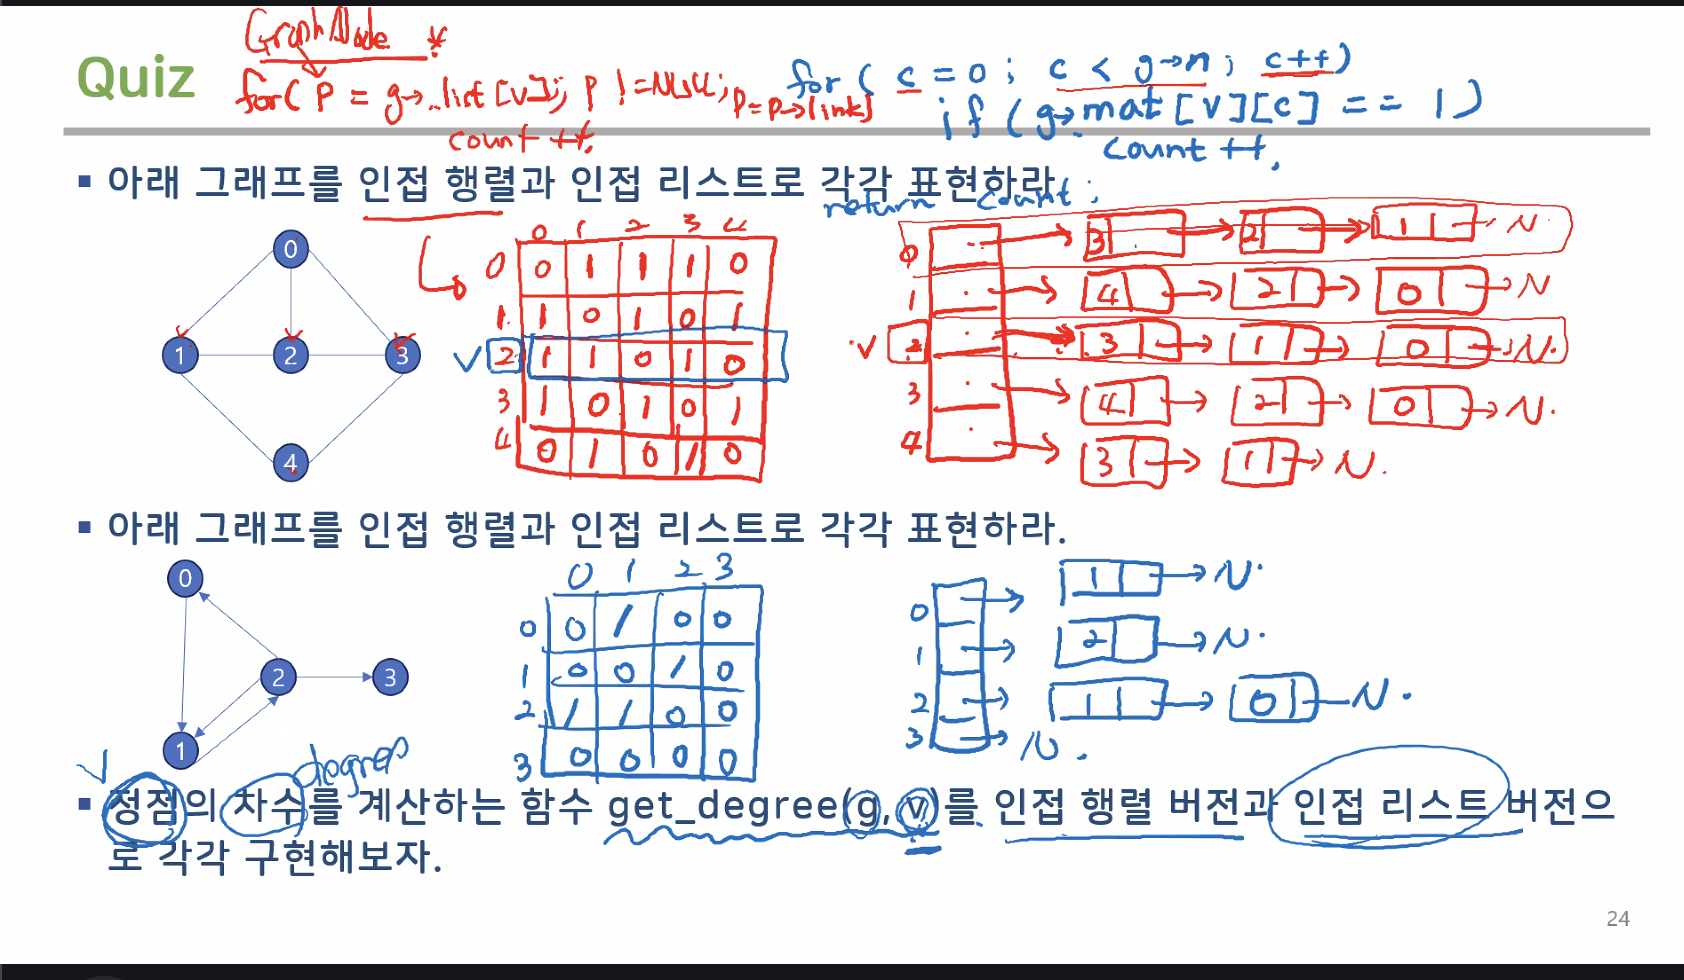 GraphNode *
Quiz
for( P = g→list[v]; P != NULL; P=P→link)
count ++;
for ( c = 0 ; c < g→n ; c++)
if ( g→mat [v][c] == 1 )
count ++;
return count ;
▪ 아래 그래프를 인접 행렬과 인접 리스트로 각각 표현하라.
0
1 2 3
4
0 1 2 3 4
0 0 1 1 1 0
1 1 0 1 0 1
V 2 1 1 0 1 0
3 1 0 1 0 1
4 0 1 0 1 0
0 3 2 1 N
1 4 2 0 N
V 2 3 1 0 N.
3 4 2 0 N.
4 3 1 N.
▪ 아래 그래프를 인접 행렬과 인접 리스트로 각각 표현하라.
0
2 3
1
0 1 2 3
0 0 1 0 0
1 0 0 1 0
2 1 1 0 0
3 0 0 0 0
0 1 N.
1 2 N.
2 1 0 N.
3 N.
degree
▪ 정점의 차수를 계산하는 함수 get_degree(g, v)를 인접 행렬 버전과 인접 리스트 버전으
로 각각 구현해보자.
24